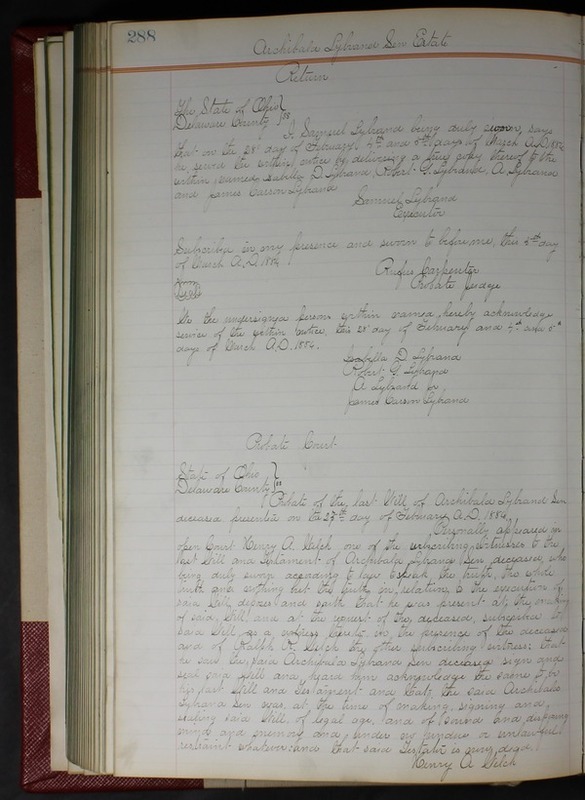 288
Archibald Lybrand Sen Estate
Return
The State of Ohio }
Delaware County } ss
I, Samuel Lybrand being duly sworn, says
that on the 28" day of February, 4th and 5th days of March A.D. 1884
he served the within notice by delivering a true copy thereof to the
within named Isabella D. Lybrand, Robert G. Lybrand, A. Lybrand
and James Carson Lybrand
Samuel Lybrand
Executor
Subscribed in my presence and sworn to before me, this 5th day
of March A.D. 1884
Rufus Carpenter
Probate Judge
Seal
We the undersigned persons within named, hereby acknowledge
service of the within notice this 28" day of February and 4th and 5th
days of March A.D. 1884.
Isabella D Lybrand
Robert G. Lybrand
A Lybrand Jr.
James Carson Lybrand
Probate Court
State of Ohio }
Delaware County } ss
Probate of the last Will of Archibald Lybrand Sen
deceased presented on the 27th day of February A.D. 1884
Personally appeared in
open Court Henry A. Welch one of the subscribing witnesses to the
last Will and Testament of Archibald Lybrand Sen deceased, who
being duly sworn according to law to speak the truth, the whole
truth and nothing but the truth, in relation to the execution of
said Will, deposes and saith that he was present at the making
of said Will and at the request of the deceased, subscribed to
said Will as a witness thereto in the presence of the deceased
and of Ralph R. Welch the other subscribing witness: that
he saw the said Archibald Lybrand Sen deceased sign and
seal said Will and heard him acknowledge the same to be
his last Will and Testament and that the said Archibald
Lybrand Sen was, at the time of making, signing and
sealing said Will, of legal age, and of Sound and disposing
mind and memory and under no undue or unlawful
restraint whatever: and that said Testator is now dead.
Henry A Welch